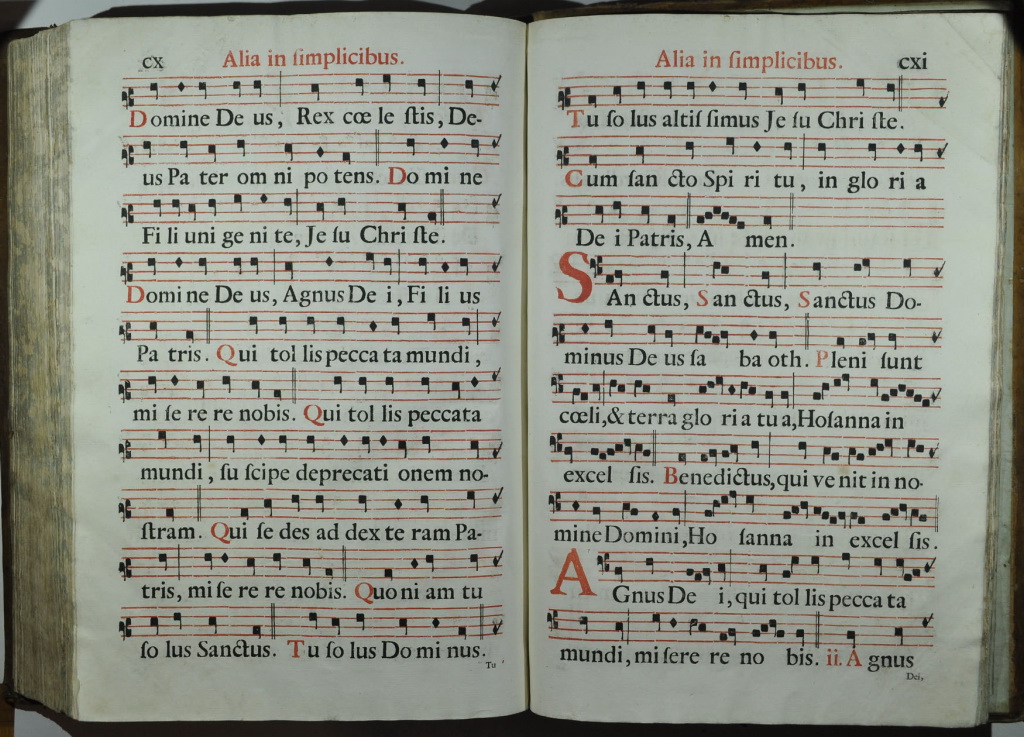 cx
Alia in ſimplicibus.
Domine De us, Rex cœ le ſtis, De-
us Pa ter om ni po tens. Do mi ne
Fi li uni ge ni te, Je ſu Chri ſte.
Domi ne De us, Agnus De i, Fi li us
Pa tris. Qui tol lis pecca ta mundi,
mi ſe re re nobis. Qui tol lis peccata
mundi, ſu ſcipe deprecati onem no-
ſtram. Qui ſe des ad dex te ram Pa-
tris, mi ſe re re nobis. Quo ni am tu
ſo lus Sanctus. Tu ſo lus Do mi nus.
Tu
Alia in ſimplicibus.
cxi
Tu ſo lus altiſ ſimus Je ſu Chri ſte.
Cum ſan cto Spi ri tu, in glo ri a
De i Patris, A men.
SAn ctus, San ctus, Sanctus Do-
minus De us ſa ba oth. Pleni ſunt
cœli, & terra glo ri a tu a, Hoſanna in
excel ſis. Benedictus, qui ve nit in no-
mine Domini, Ho ſanna in excel ſis.
AGnus De i, qui tol lis pecca ta
mundi, mi ſere re no bis. ii. A gnus
Dei,